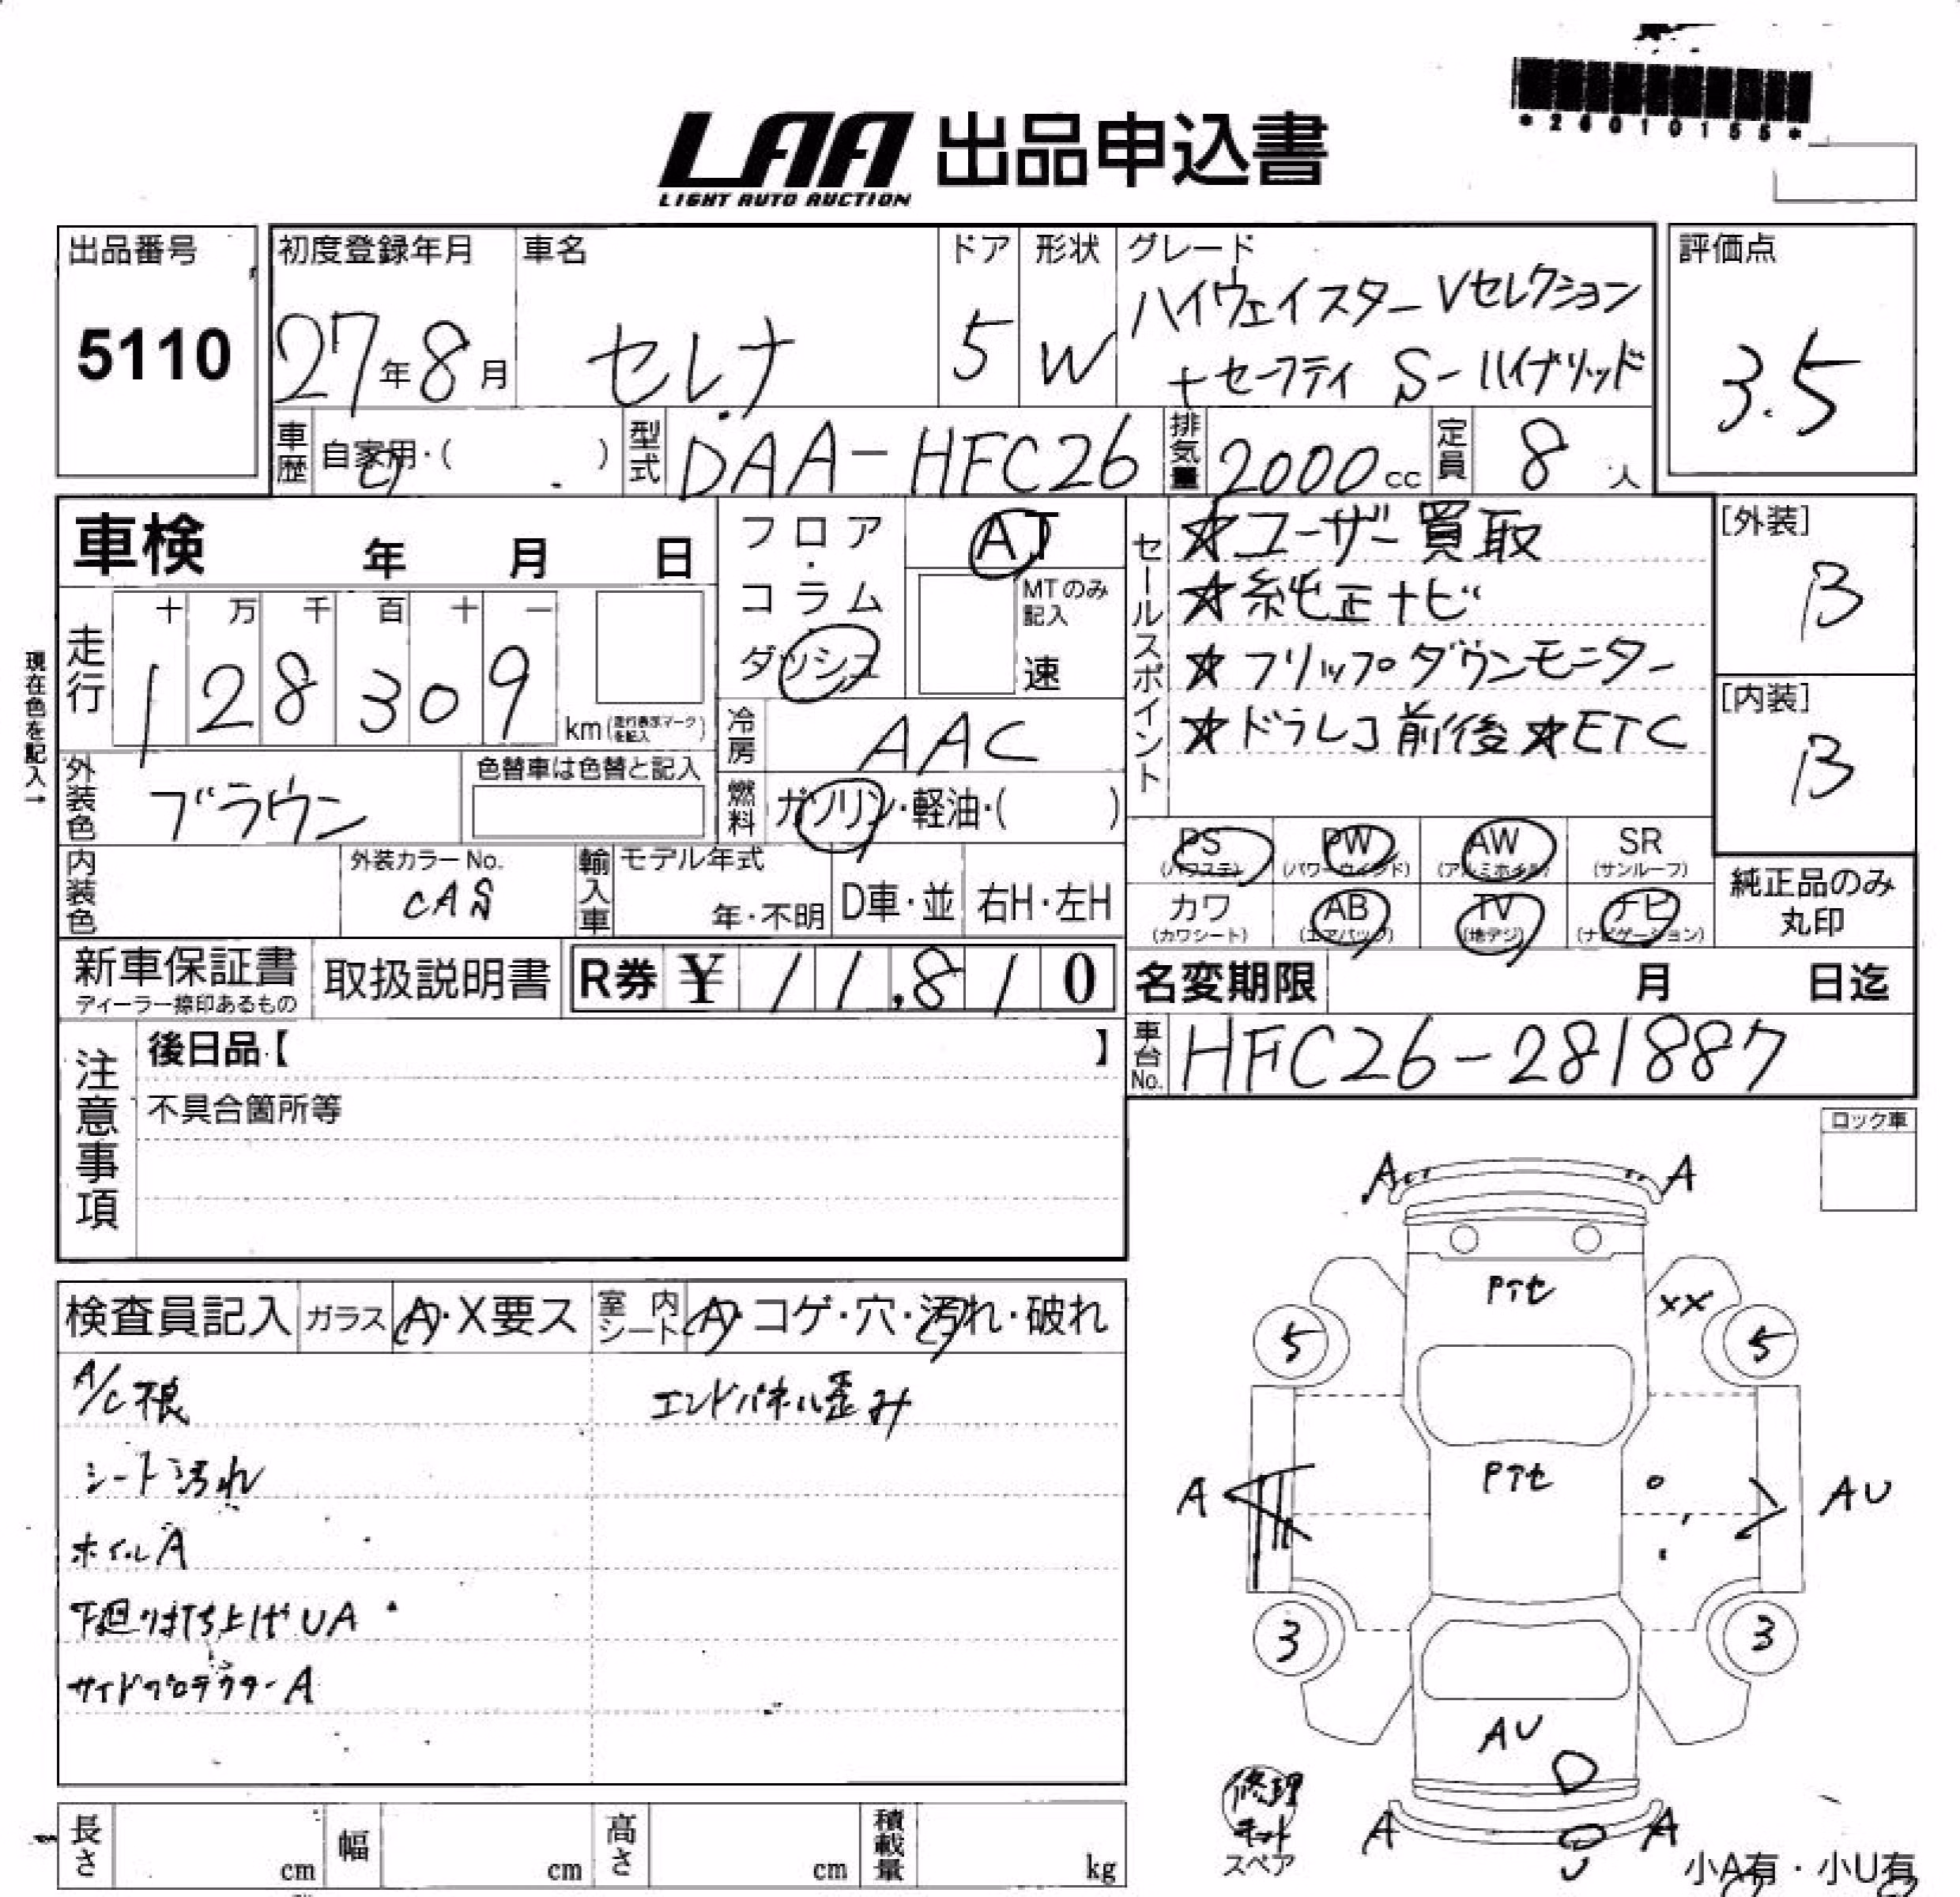 *26010155*
LAA 出品申込書
LIGHT AUTO AUCTION
出品番号
5110
初度登録年月
27年8月
車名
セレナ
ドア
5
形状
W
グレード
ハイウェイスター Vセレクション
+セーフティ S-ハイブリッド
評価点
3.5
車歴 自家用・( )
型式 DAA-HFC26
排気量 2000cc
定員 8人
車検 年 月 日
フロア・コラム
ダッシュ
AT
MTのみ記入
速
セールスポイント
☆ユーザー買取
☆純正ナビ
☆フリップダウンモニター
☆ドラレコ前後 ☆ETC
[外装]
B
[内装]
B
現在色を記入→
走行
十 万 千 百 十 一
1 2 8 3 0 9
km(走行表示マークを記入)
冷房 AAC
外装色 ブラウン
色替車は色替と記入
燃料 ガソリン・軽油・( )
PS
(パワステ)
PW
(パワーウインド)
AW
(アルミホイル)
SR
(サンルーフ)
カワ
(カワシート)
AB
(エアバッグ)
TV
(地デジ)
ナビ
(ナビゲーション)
純正品のみ
丸印
内装色
外装カラーNo.
CAS
輸入車
モデル年式
年・不明
D車・並
右H・左H
新車保証書
ディーラー捺印あるもの
取扱説明書
R券 ¥ 11,810
名変期限 月 日迄
車台No. HFC26-281887
注意事項
後日品【 】
不具合箇所等
ロック車
検査員記入 ガラス A・X要ス
室内シート A・コゲ・穴・汚れ・破れ
A/C不良
エンドパネル歪み
シート汚れ
ホイルA
下廻り打ち上げUA
サイドプロテクターA
A A
Pﾃｾ
XX
5 5
Pﾃｾ
A AU
3 3
AU
A A
修理
キット
スペア
小A有・小U有
長さ cm
幅 cm
高さ cm
積載量 kg